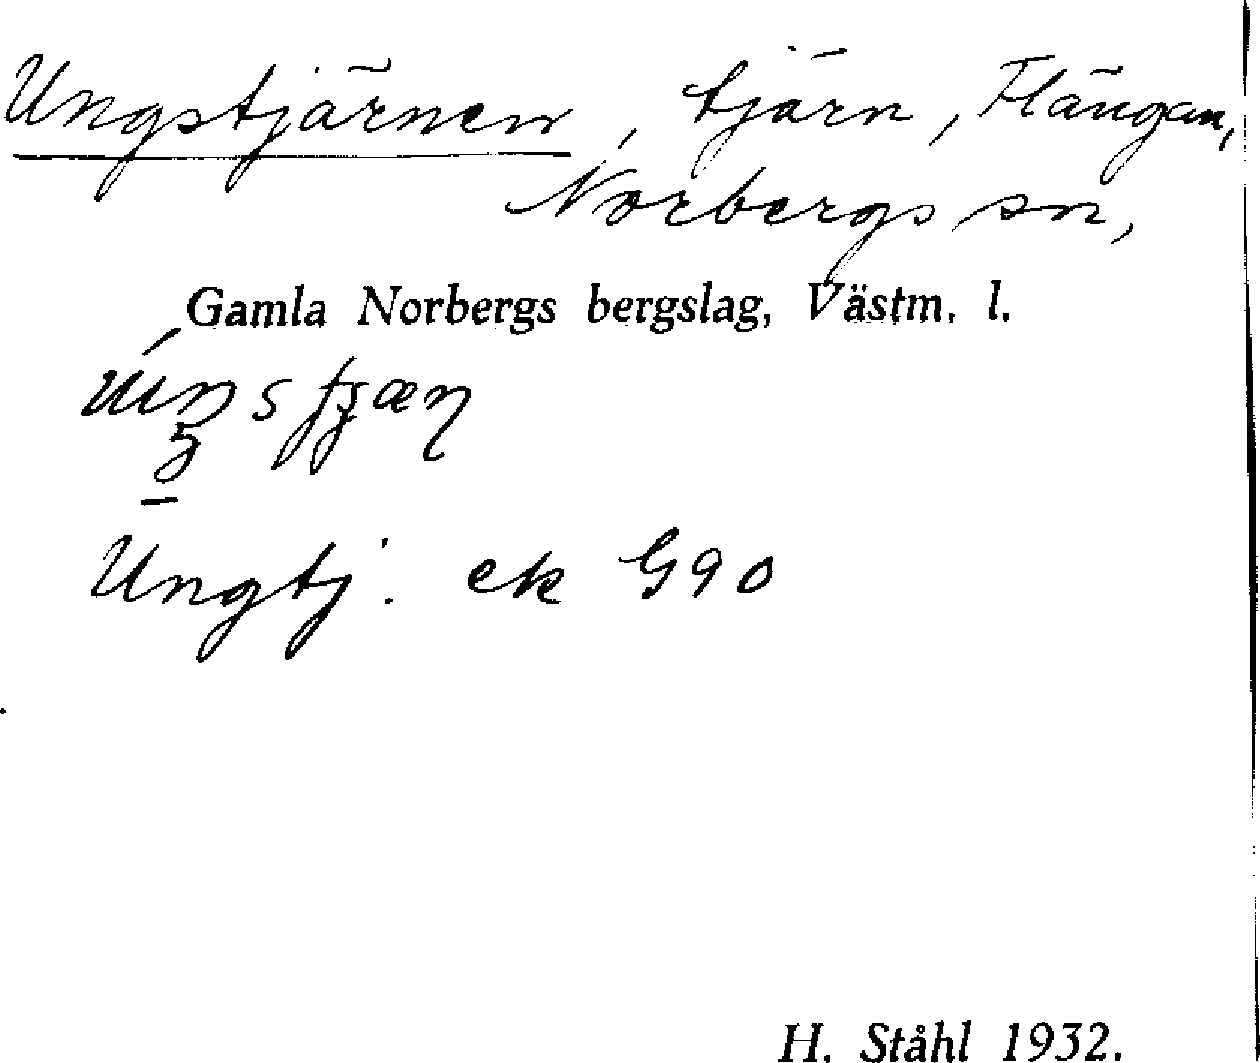 Ungstjärnen, tjärn, Flängan,
Norbergs sn,
Gamla Norbergs bergslag, Västm. l.
Ungtj. ek G90
H. Ståhl 1932.